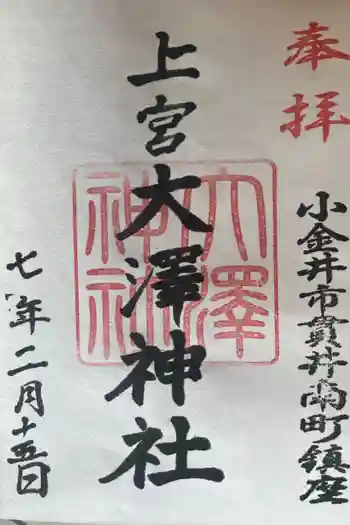 奉拝
小金井市貫井南町鎮座
上宮大澤神社
大澤
神社
七年二月十五日